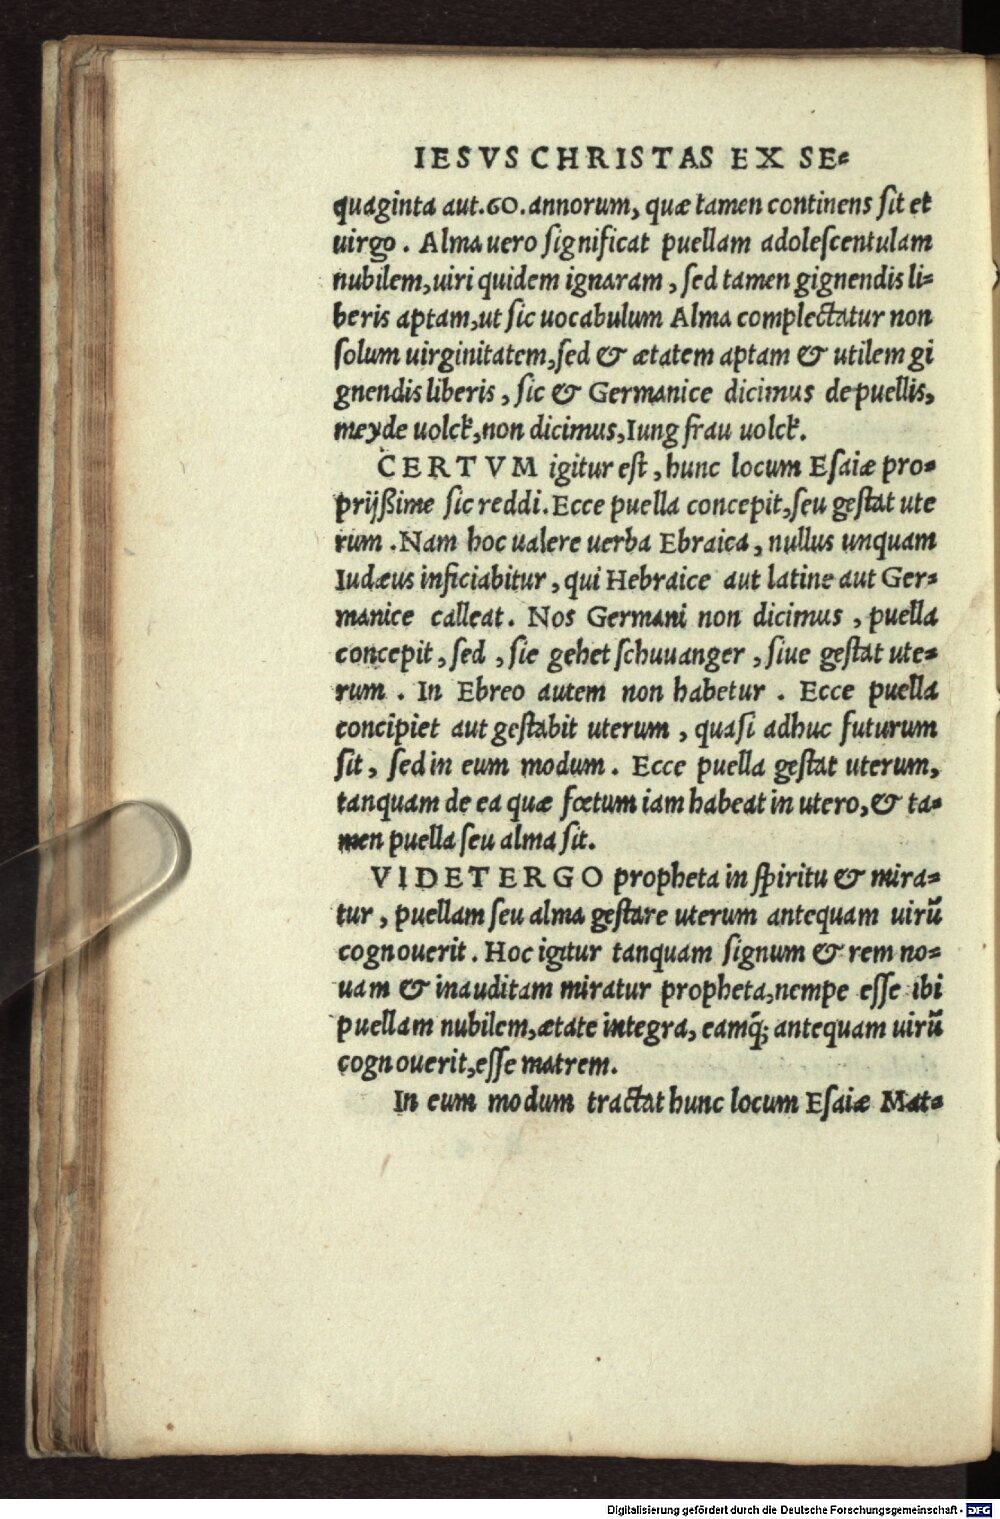 IESVS CHRISTAS EX SE-
quaginta aut.60.annorum, quæ tamen continens ſit et
uirgo. Alma uero ſignificat puellam adoleſcentulam
nubilem,uiri quidem ignaram, ſed tamen gignendis li-
beris aptam,ut ſic uocabulum Alma complectatur non
ſolum uirginitatem,ſed & ætatem aptam & utilem gi
gnendis liberis, ſic & Germanice dicimus de puellis,
meyde uolck,non dicimus,Iung frau uolck.
CERTVM igitur eſt, hunc locum Eſaiæ pro-
prijßime ſic reddi. Ecce puella concepit,ſeu geſtat ute
rum. Nam hoc ualere uerba Ebraica, nullus unquam
Iudæus inficiabitur, qui Hebraice aut latine aut Ger-
manice calleat. Nos Germani non dicimus, puella
concepit, ſed, ſie gehet ſchuuanger, ſiue geſtat ute-
rum. In Ebreo autem non habetur. Ecce puella
concipiet aut geſtabit uterum, quaſi adhuc futurum
ſit, ſed in eum modum. Ecce puella geſtat uterum,
tanquam de ea quæ fœtum iam habeat in utero,& ta-
men puella ſeu alma ſit.
VIDET ERGO propheta in ſpiritu & mira-
tur, puellam ſeu alma geſtare uterum antequam uirũ
cognouerit. Hoc igitur tanquam ſignum & rem no-
uam & inauditam miratur propheta,nempe eſſe ibi
puellam nubilem,ætate integra, eamq̃; antequam uirũ
cognouerit,eſſe matrem.
In eum modum tractat hunc locum Eſaiæ Mat-
Digitalisierung gefördert durch die Deutsche Forschungsgemeinschaft - DFG